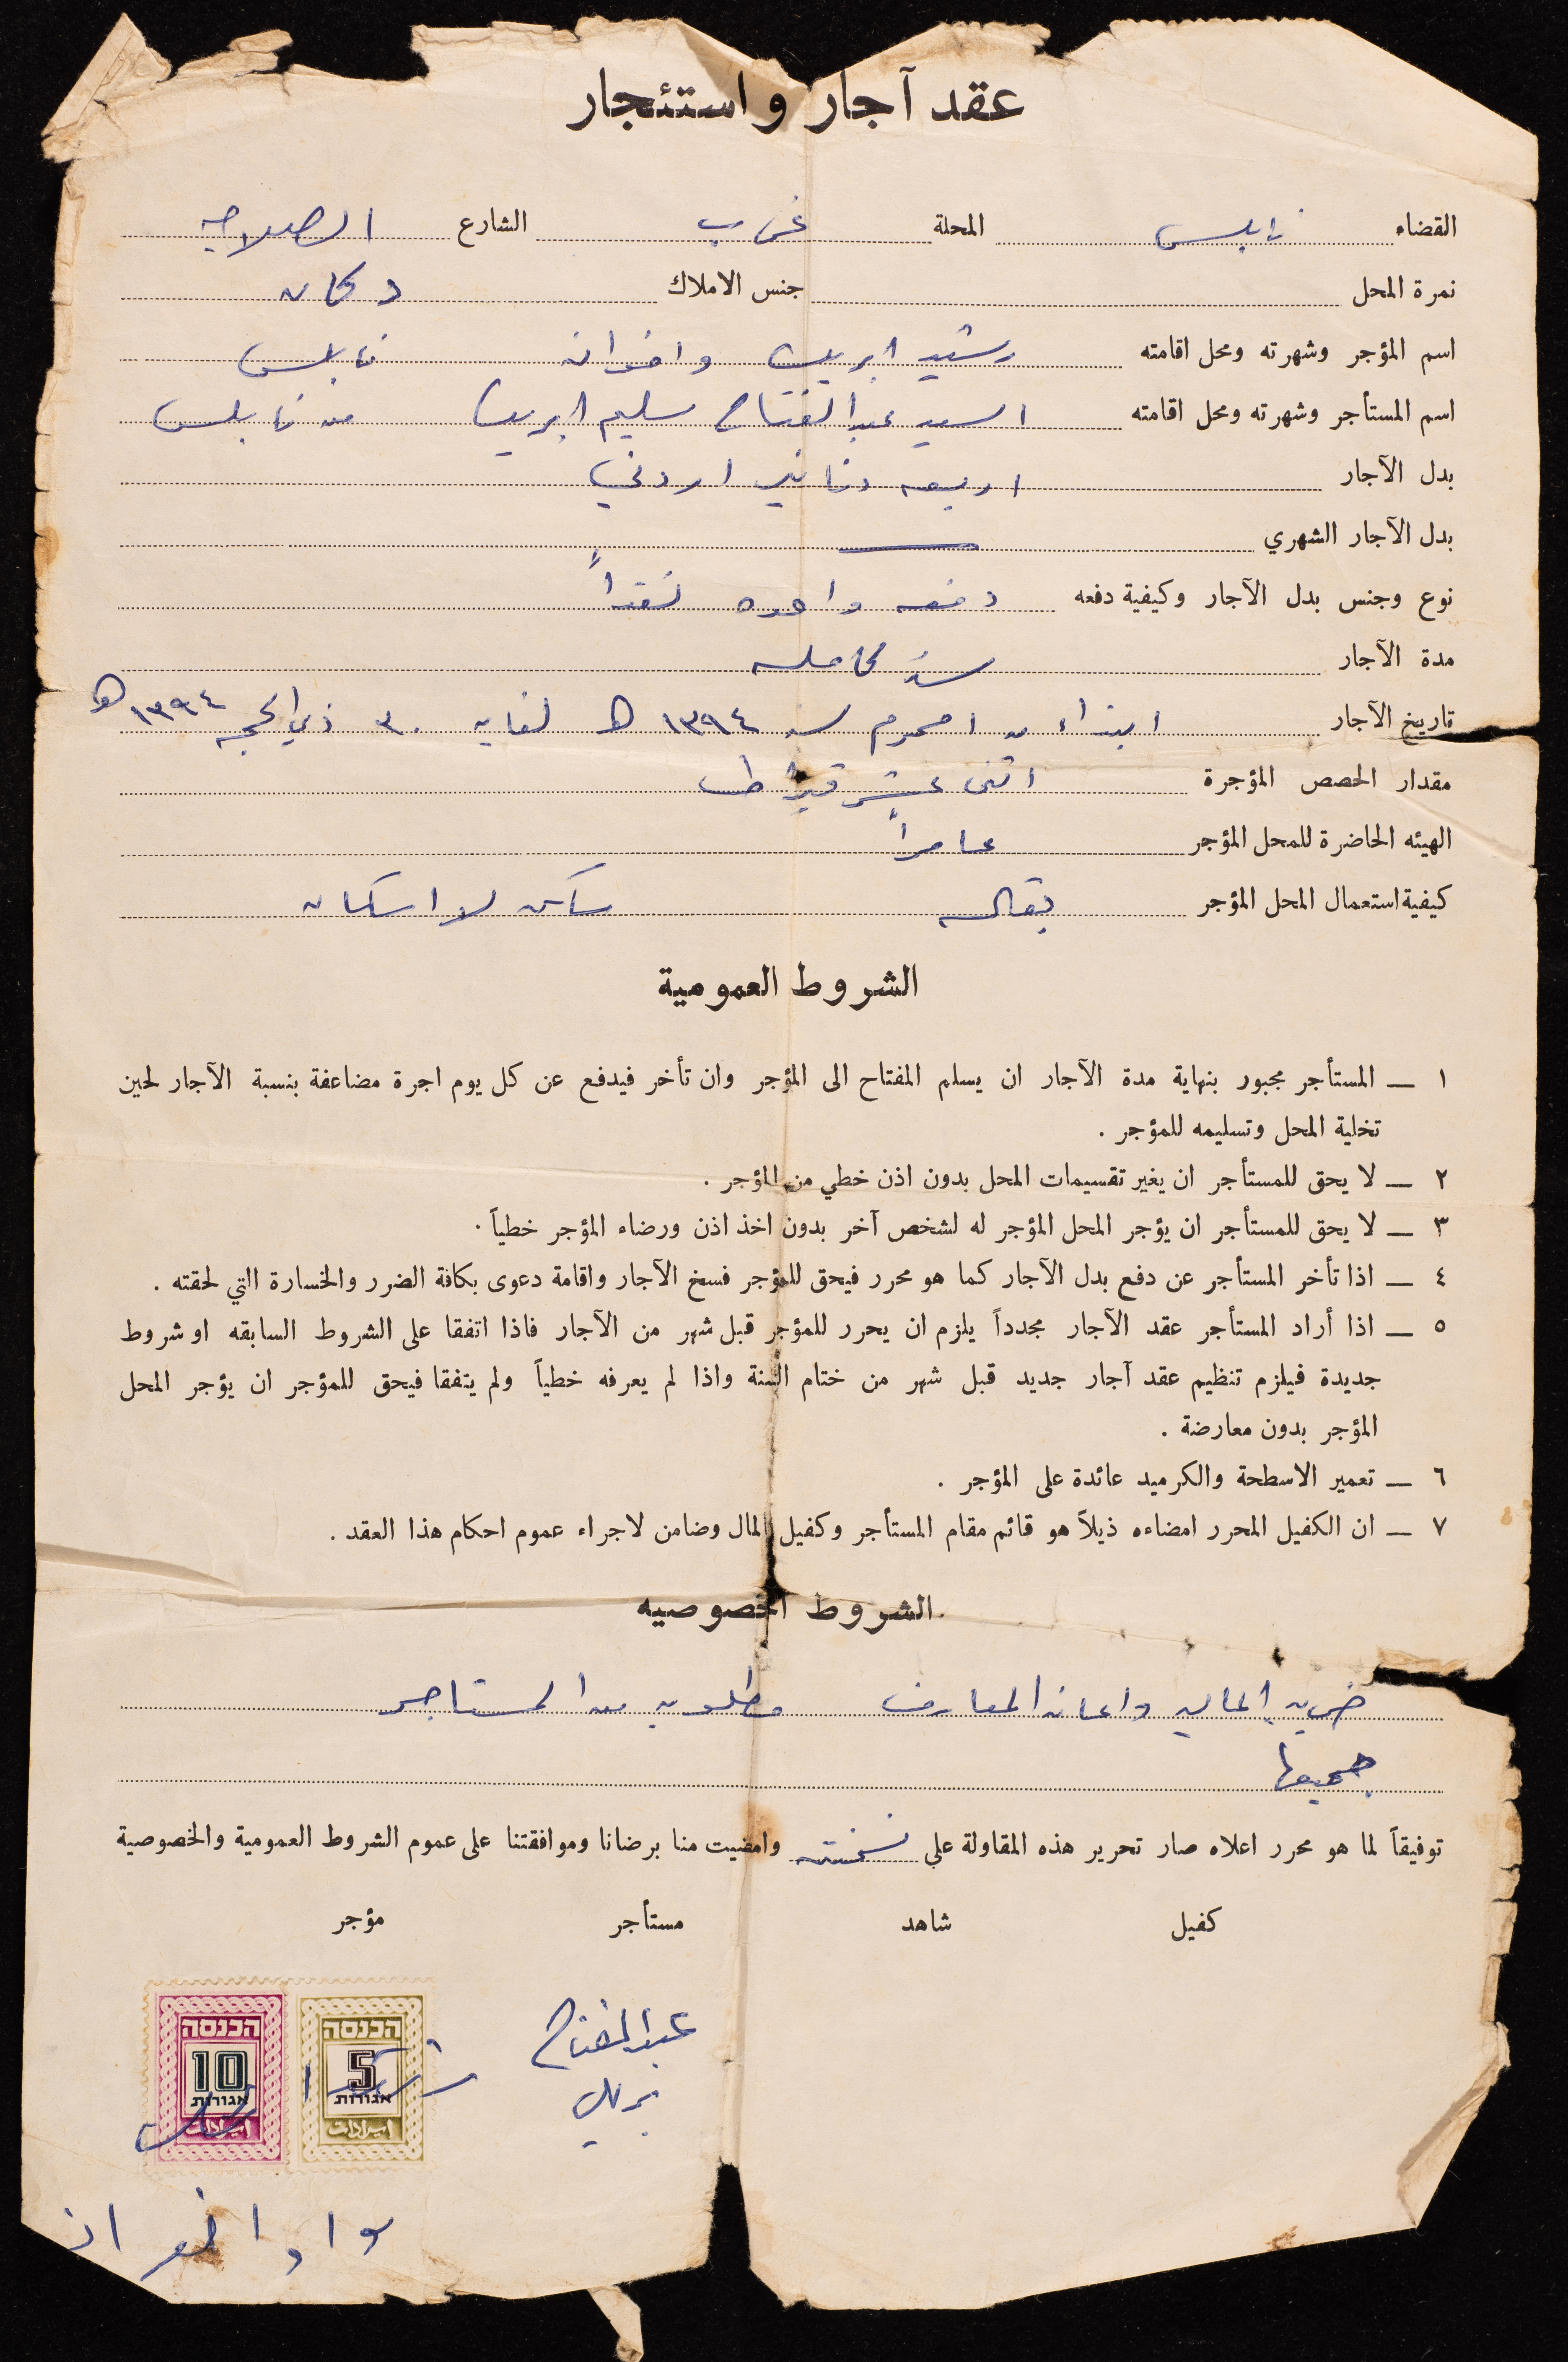 عقد آجار واستئجار
القضاء نابلس المحلة غرب الشارع الصلاحيه
نمرة المحل جنس الاملاك دكان
اسم المؤجر وشهرته ومحل اقامته رشيد البريك واخوانه نابلس
اسم المستأجر وشهرته ومحل اقامته السيد عبد الفتاح سليم البريك من نابلس
بدل الآجار اربعه دنانير اردني
بدل الآجار الشهري
نوع وجنس بدل الآجار وكيفية دفعه دفعه واحده نقداً
مدة الآجار سنه كامله
تاريخ الآجار ابتداء من ١ محرم سنه ١٣٩٤ هـ لغايه ٣٠ ذي الحجه ١٣٩٤ هـ
مقدار الحصص المؤجرة اثنى عشر قيراط
الهيئه الحاضرة للمحل المؤجر عامراً
كيفية استعمال المحل المؤجر بقاله ساكن لا اسكان
الشروط العمومية
١ — المستأجر مجبور بنهاية مدة الآجار ان يسلم المفتاح الى المؤجر وان تأخر فيدفع عن كل يوم اجرة مضاعفة بنسبة الآجار لحين
تخلية المحل وتسليمه للمؤجر .
٢ — لا يحق للمستأجر ان يغير تقسيمات المحل بدون اذن خطي من المؤجر .
٣ — لا يحق للمستأجر ان يؤجر المحل المؤجر له لشخص آخر بدون اخذ اذن ورضاء المؤجر خطياً .
٤ — اذا تأخر المستأجر عن دفع بدل الآجار كما هو محرر فيحق للمؤجر فسخ الآجار واقامة دعوى بكافة الضرر والخسارة التي لحقته .
٥ — اذا أراد المستأجر عقد الآجار مجدداً يلزم ان يحرر للمؤجر قبل شهر من الآجار فاذا اتفقا على الشروط السابقه او شروط
جديدة فيلزم تنظيم عقد آجار جديد قبل شهر من ختام السنة واذا لم يعرفه خطياً ولم يتفقا فيحق للمؤجر ان يؤجر المحل
المؤجر بدون معارضة .
٦ — تعمير الاسطحة والكرميد عائدة على المؤجر .
٧ — ان الكفيل المحرر امضاءه ذيلاً هو قائم مقام المستأجر وكفيل المال وضامن لاجراء عموم احكام هذا العقد .
الشروط الخصوصيه
ضريبه الماليه واعانه المعارف مطلوبه من المستاجر
جميعها
توفيقاً لما هو محرر اعلاه صار تحرير هذه المقاولة على نسختين وامضيت منا برضانا وموافقتنا على عموم الشروط العمومية والخصوصية
كفيل شاهد مستأجر مؤجر
عبد الفتاح
بريك
הכנסה הכנסה
5 10
אגורות אגורות
ايرادات ايرادات